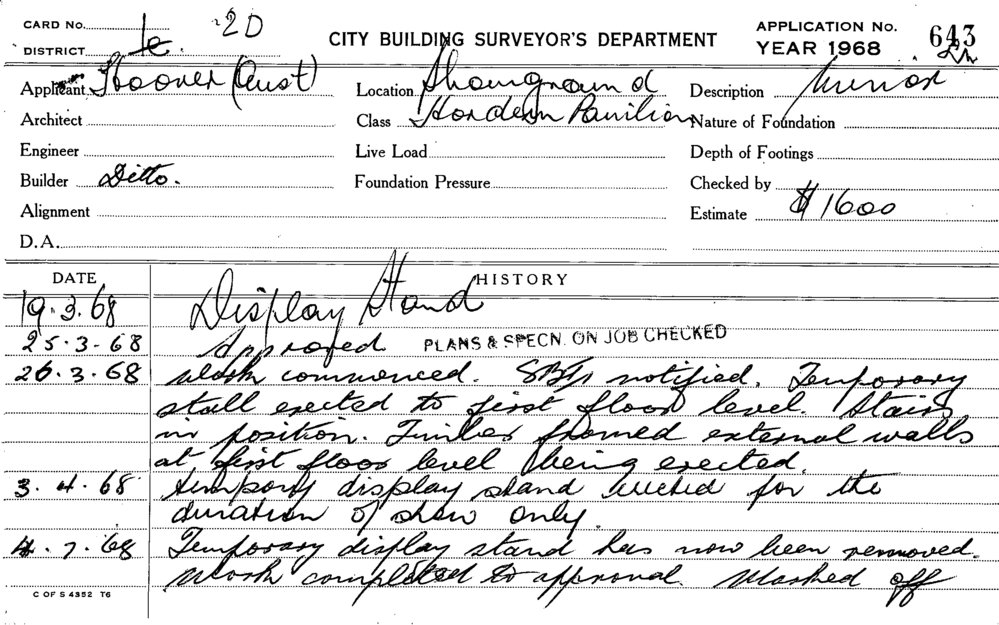 CARD No. 2D
DISTRICT
CITY BUILDING SURVEYOR'S DEPARTMENT
APPLICATION No. 643
YEAR 1968
Applicant Hoover (Aust)
Location Showground
Description Minor
Architect
Class Hordern Pavilion
Nature of Foundation
Engineer
Live Load
Depth of Footings
Builder Ditto.
Foundation Pressure
Checked by
Alignment
Estimate $1600
D.A.
DATE
HISTORY
19.3.68 Display Stand
25.3-68 Approved PLANS & SPECN. ON JOB CHECKED
26.3.68 Work commenced. notified. Temporary
stall erected to first floor level. Stairs
in position. Timber framed external walls
at first floor level being erected.
3.4.68 tempory display stand erected for the
duration of show only.
4.7.68 Temporary display stand has now been removed.
Work completed to approval. Marked off
C OF S 4352 T6